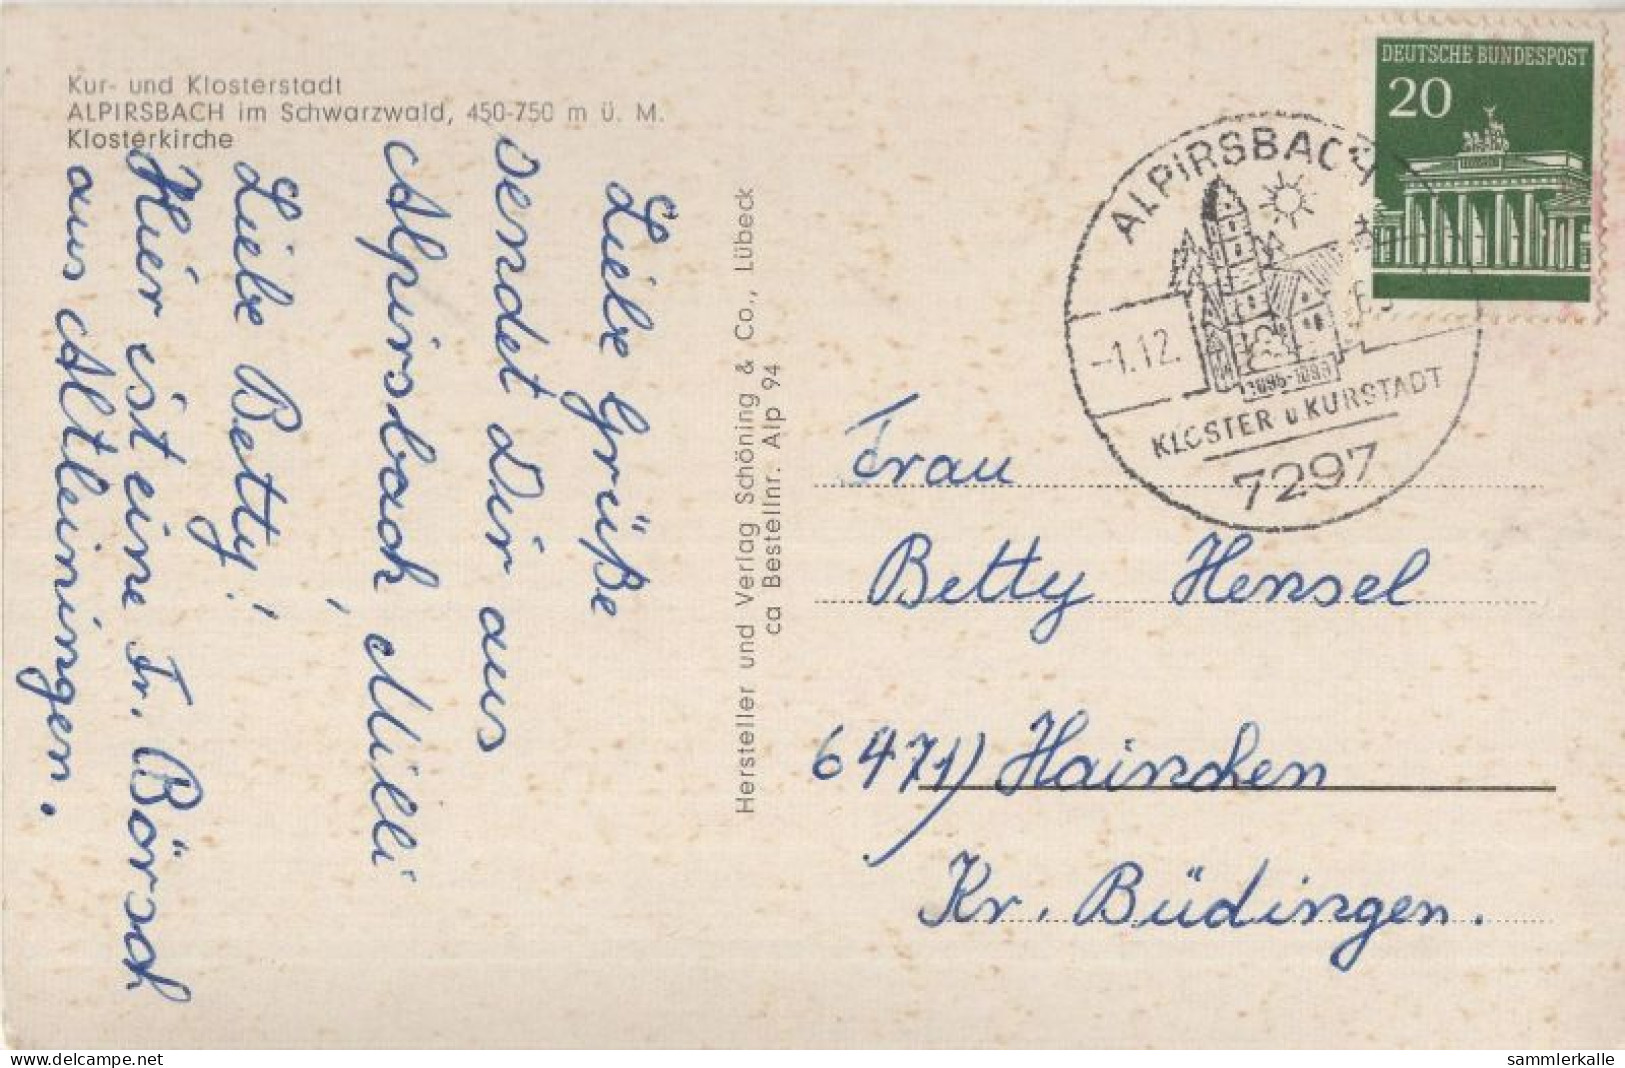 Kur- und Klosterstadt
ALPIRSBACH im Schwarzwald, 450-750 m ü. M.
Klosterkirche
Liebe Grüße
sendet Dir aus
Alpirsbach, Milli
Liebe Betty!
Hier ist eine Fr. Börsch
aus Altleiningen.
Hersteller und Verlag Schöning & Co., Lübeck
ca Bestellnr. Alp 94
DEUTSCHE BUNDESPOST
20
ALPIRSBACH
-1.12.
1095-1095
KLOSTER u KURSTADT
7297
Frau
Betty Hensel
6471) Hainchen
Kr. Büdingen.
delcampe.net
sammlerkalle